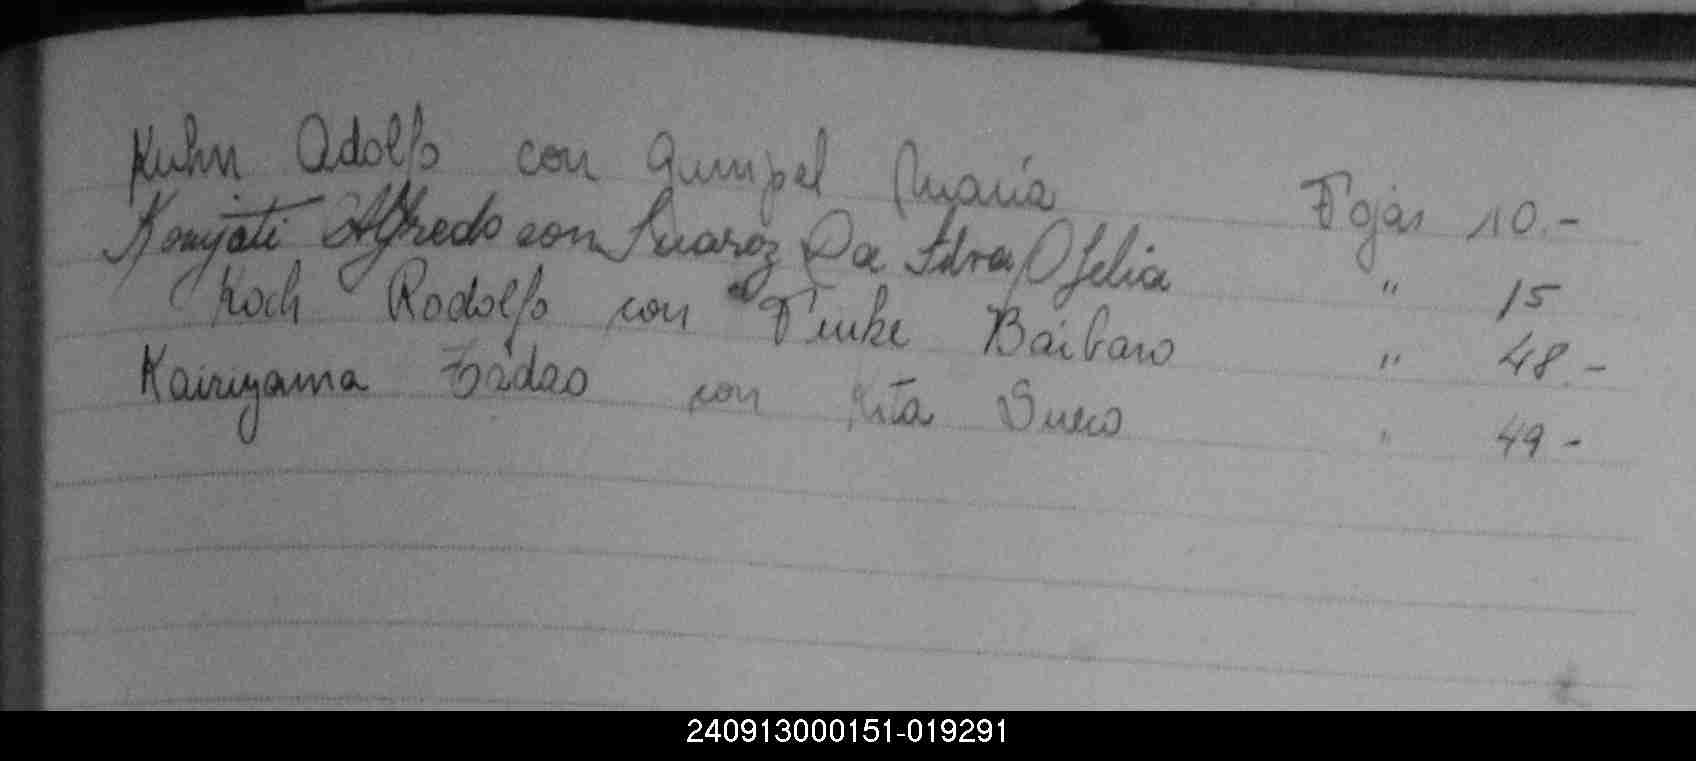 Kuhn Adolfo con Gumpel Maria Fojas 10.-
Konyati Alfredo con Suarez Da Silva Ofelia " 15
Koch Rodolfo con Finke Barbara " 48.-
Kairiyama Tadao con Kita Sueco " 49-
240913000151-019291